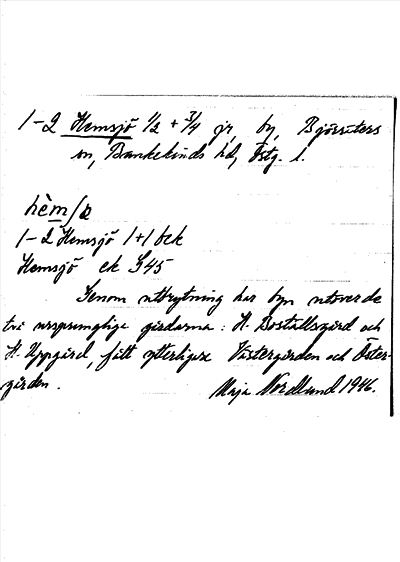 1-2 Hemsjö 1/2 + 3/4 jr, by, Björsäters
sn, Bankekinds hd, Östg. l.
hèm∫ø
1-2 Hemsjö 1+1 bck
Hemsjö ek S45
Genom utbrytning har byn utöver de
två ursprungliga gårdarna: H. Boställsgård och
H. Uppgård, fått ytterligare Västergården och Öster-
gården.
Maja Nordlund 1946.